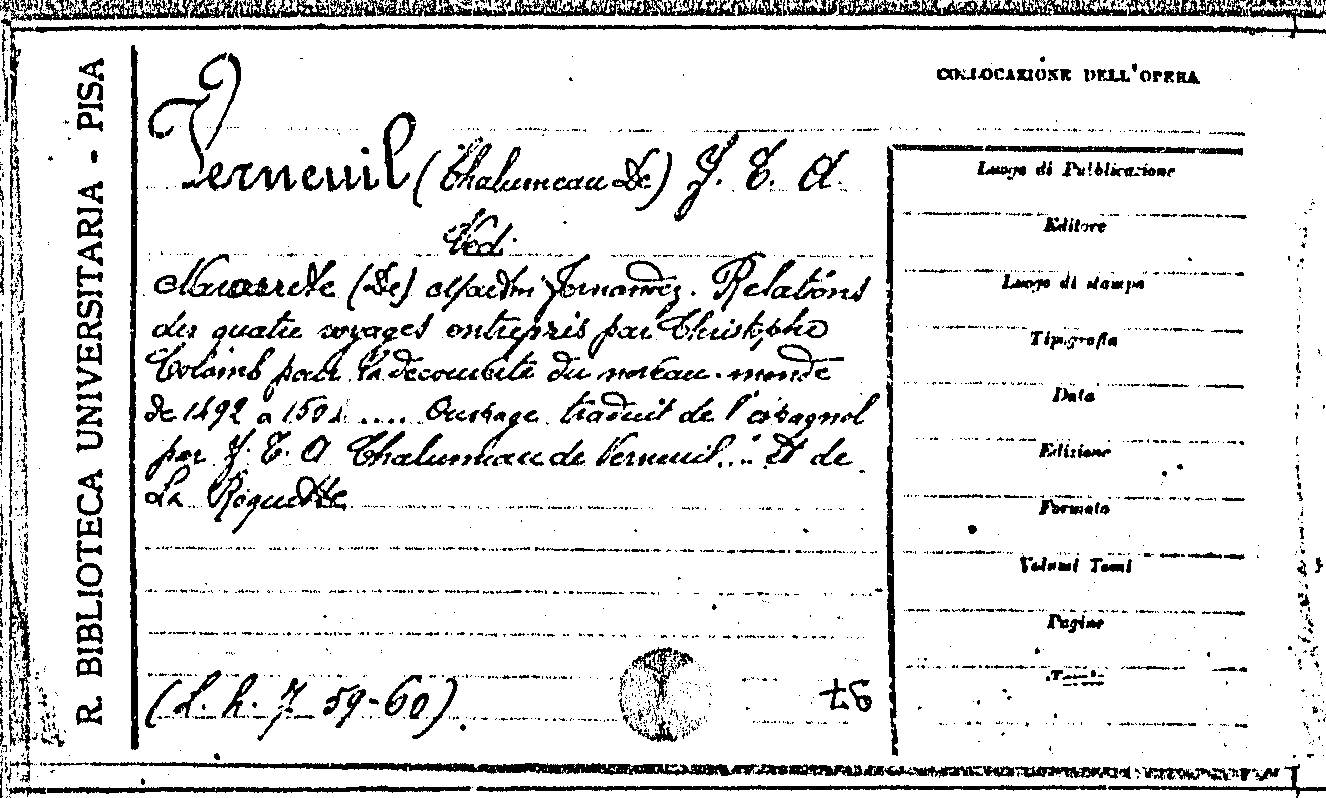 R. BIBLIOTECA UNIVERSITARIA - PISA
COLLOCAZIONE DELL'OPERA
Verneuil (Chalumeau De) J. T. A.
Vedi
Navarrete (De) Martin Fernandez. Relations
des quatre voyages entrepris par Christophe
Colomb pour la decouverte du noveau-monde
de 1492 a 1504 .... Ouvrage traduit de l'espagnol
par J. T. A Chalumeau de Verneuil... Et de
La Roquette
(L. h. 7 59-60).
Luogo di Pubblicazione
Editore
Luogo di stampa
Tipografia
Data
Edizione
Formato
Volumi Tomi
Pagine